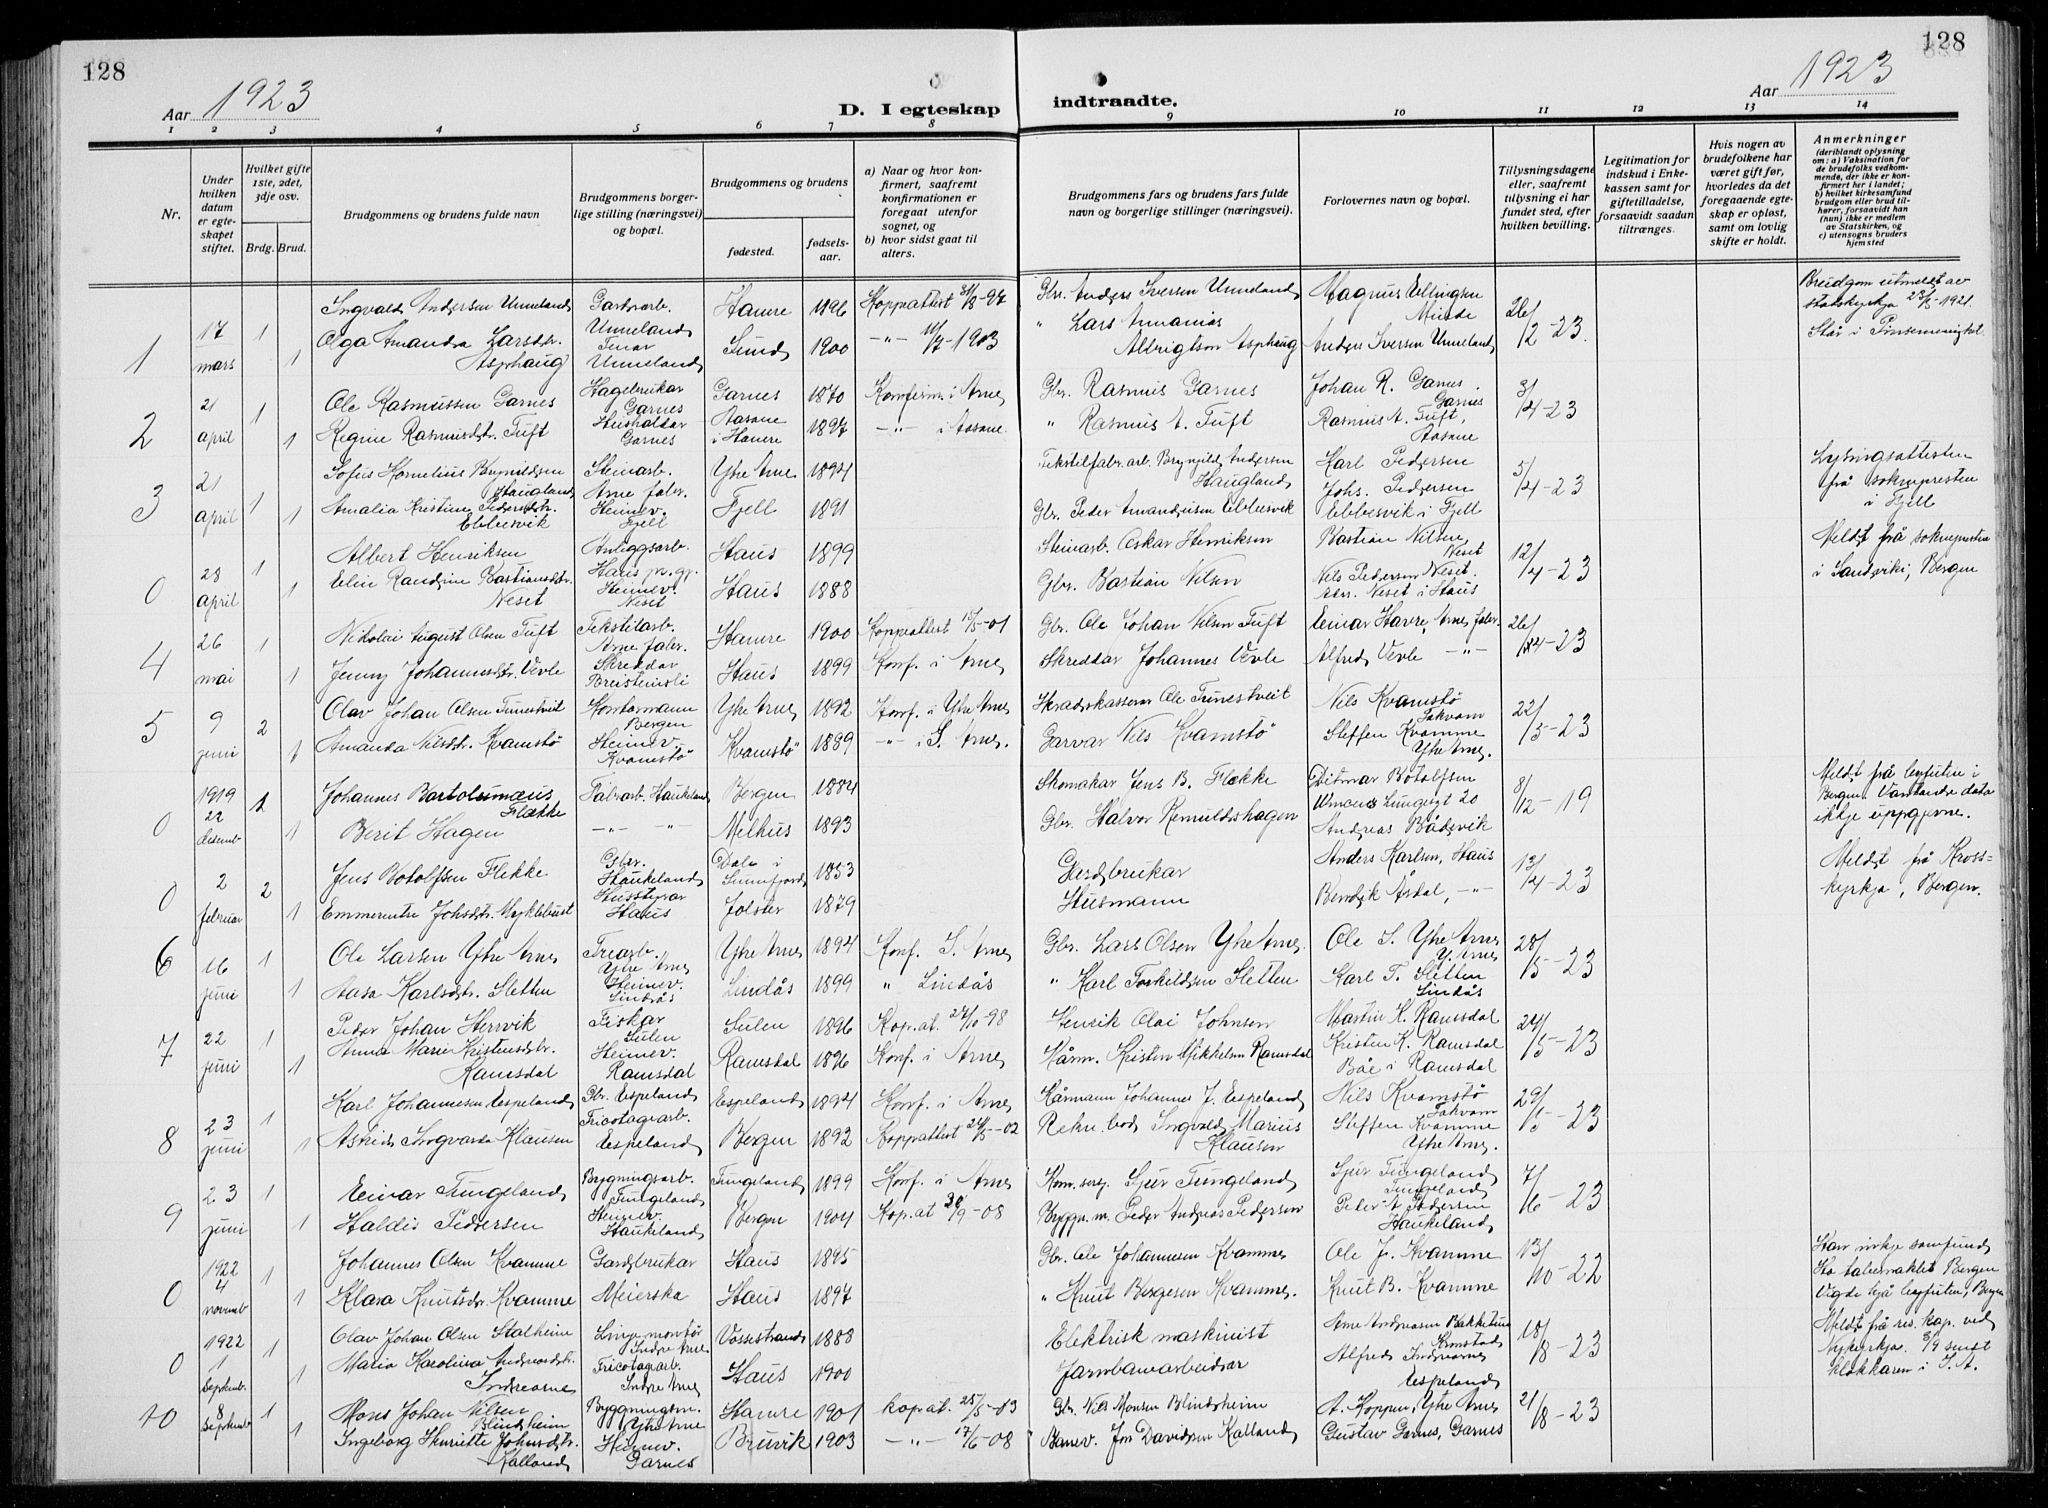 128
Aar 1923
D. I egteskap
indtraadte.
Aar 1923
128
1 2 3 4 5 6 7 8 9 10 11 12 13 14
Nr.
Under hvilken datum er egteskapet stiftet.
Hvilket gifte 1ste, 2det, 3dje osv.
Brdg. Brud.
Brudgommens og brudens fulde navn
Brudgommens borgerlige stilling (næringsvei) og bopæl.
Brudgommens og brudens
fødested.
fødselsaar.
a) Naar og hvor konfirmert, saafremt konfirmationen er foregaat utenfor sognet, og
b) hvor sidst gaat til alters.
Brudgommens fars og brudens fars fulde navn og borgerlige stillinger (næringsvei).
Forlovernes navn og bopæl.
Tillysningsdagene eller, saafremt tillysning ei har fundet sted, efter hvilken bevilling.
Legitimation for indskud i Enkekassen samt for giftetilladelse, forsaavidt saadan tiltrænges.
Hvis nogen av brudefolkene har været gift før, hvorledes da det foregaaende egteskap er opløst, samt om lovlig skifte er holdt.
Anmerkninger
(deriblandt oplysning om: a) Vaksination for de brudefolks vedkommende, der ikke er konfirmert her i landet; b) hvilket kirkesamfund brudgom eller brud tilhører, forsaavidt han (hun) ikke er medlem av Statskirken, og c) utensogns bruders hjemsted
1 17 mars 1 Ingvald Andersen Unneland Gardsarb. Unneland Hamre 1896 Koppattest 31/8-97 Gbr. Anders Iversen Unneland Magnus Ellingsen Minde 26/2-23. Brudgom utmeldt av statskyrkja 1921. Står i Pinsemenighet
1 Olga Amanda Larsdtr. Asphaug Unneland Sund 1900 -"- 10/7-1903 " Lars Ananias Albrigtson Asphaug Anders Iversen Unneland
2 21 april 1 Ole Rasmussen Garnes Hagebrukar Garnes Garnes 1870 Konfirm. i Arne Gbr. Rasmus Garnes Johan R. Garnes Garnes 3/4-23
1 Regine Rasmusdtr. Tuft Hushaldar Garnes Aasane i Hamre 1897 -"- i Aasane " Rasmus A. Tuft Rasmus A. Tuft, Aasane
3 21 april 1 Sofus Kornelius Brynildsen Haugland Steinarb. Arne fabr. Ytre Arne 1894 Tekstilfabr. arb. Brynjild Andersen Haugland Karl Pedersen 5/4-23 Lysingsattesten frå soknepresten i Fjell
1 Amalia Kristine Pedersdtr. Ebbesvik Heimev. Fjell Fjell 1891 Gbr. Peder Amandusen Ebbesvik Johs. Pedersen Ebbesvik i Fjell
0 28 april 1 Albert Henriksen Anleggsarb. Haus pr. gr. Haus 1899 Steinarb. Oskar Henriksen Bastian Nilsen, Neset 12/4-23 Meldt frå soknepresten i Sandviki, Bergen
1 Elin Randine Bastiansdtr. Neset Heimev. Neset Haus 1888 Gbr. Bastian Nilsen Nils Pedersen Neset. Adr. Neset i Haus
4 26 mai 1 Nikolai August Olsen Tuft Tekstilarb. Arne fabr. Hamre 1900 Koppattest 15/5-01 Gbr. Ole Johan Nilsen Tuft Einar Havre, Arne fabr. 26/4-23
1 Jenny Johannesdtr. Vevle Skreddar Breisteinsli Haus 1899 Konf. i Arne Skreddar Johannes Vevle Alfred Vevle -"-
5 9 juni 2 Olav Johan Olsen Tunestveit Kontormann Bergen Ytre Arne 1892 Konf. i Ytre Arne Heradskasserar Ole Tunestveit Nils Kvamstø Takvam 22/5-23
1 Amanda Nilsdtr. Kvamstø Heimev. Kvamstø Kvamstø 1889 -"- i I. Arne. Garvar Nils Kvamstø Steffen Kvamme Ytre Arne.
0 1919 22 desemb 2 Johannes Bartolumæus Flække Fabrarb. Haukeland Bergen 1884 Skomakar Jens B. Flekke Ditmar Botolfsen 8/12-19 Meldt frå byfuten i Bergen. Vantande data ikkje uppgjevne.
1 Berit Hagen -"- " Melhus 1893 Gbr. Halvor Remuldshagen Andreas Bådsvik
0 2 februar 2 Jens Botolfsen Flekke Gbr. Haukeland Dale i Sunnfjord 1853 Gardbrukar Anders Karlsen, Haus 13/4-23 Meldt frå Krosskyrkja, Bergen.
1 Emmerentse Johsdtr. Myklebust Husstyrar Haus Jølster 1879 Husmann Bendik Åsdal, -"-
6 16 juni 1 Ole Larsen Ytre Arne Trearb. Ytre Arne Ytre Arne 1894 Konf. I. Arne Gbr. Lars Olsen Ytre Arne. Ole I. Ytre Arne Y. Arne 28/5-23
1 Aasa Karlsdtr. Sletten Heimev. Lindås Lindås 1899 " Lindås " Karl Torkildsen Sletten Karl T. Sletten Lindås
7 22 juni 1 Peder Johan Hersvik Fiskar Sulen Sulen 1896 Kop.at. 27/10-98 Henrik Olai Johnsen Martin K. Ramsdal 24/5-23
1 Anna Marie Kristensdtr. Ramsdal Heimev. Ramsdal Ramsdal 1896 Konf. i Arne Kårm. Kristen Mikkelsen Ramsdal Kristen K. Ramsdal Båe i Ramsdal
8 23 juni 1 Karl Johannesen Espeland Gbr. Espeland Espeland 1894 Konf. i Arne Kårmann Johannes J. Espeland Nils Kvamstø Takvam 29/5-23
1 Astrid Ingvarda Klausen Tricotagearb. Espeland Bergen 1892 Koppattest 24/5-02 Rekn. bod Ingvald Marius Klausen Steffen Kvamme Ytre Arne.
9 23 juni 1 Einar Tungeland Bygningsarb. Tungeland Tungeland 1899 Konf. i Arne Sjur Tungeland Sjur Tungeland Tungeland 7/6-23
1 Haldis Pedersen Heimev. Haukeland Bergen 1904 Kop.at 30/9-08 Byggn.m. Peder Andreas Pedersen Peter A Pedersen Haukeland
0 1922 4 novemb 1 Johannes Olsen Kvamme Gardbrukar Haus 1895 Gbr. Ole Johannesen Kvamme Ole J. Kvamme 13/10-22 tabernaklet Bergen Vigde hjå byfuten, Bergen
1 Klara Knutsdr. Kvamme Meierska Haus 1897 " Knut Bergesen Kvamme. Knut B. Kvamme
0 1922 1 Septemb. 1 Olav Johan Olsen Stalheim Linjemontør Indre Arne Vossestrand 1888 Elektrisk maskinist Arne Andreasen Bakketun 18/8-23 Meldt frå res. kap. ved Nykyrkja. 8/9 sendt klokkaren i I. A.
1 Maria Karolina Andreasdtr. Indrearne Tricotagearb. Indre Arne Haus 1900 Jarnbanearbeidar Alfred Indrearne Espeland
10 8 Septemb 1 Mons Johan Nilsen Blindheim Byggningsm. Ytre Arne Hamre 1901 kop.at. 25/5-03 Gbr. Nils Monsen Blindheim A. Koppen, Ytre Arne 21/8-23
1 Ingeborg Henriette Johnsdtr. Kalland Heimev. Garnes Bruvik 1903 -"- 17/6-08 Banev. Jon Davidsen Kalland Gustav Garnes, Garnes